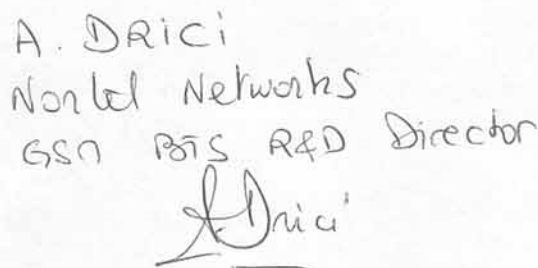 A. DRICI
Nortel Networks
GSM BTS R&D Director
A.Drici